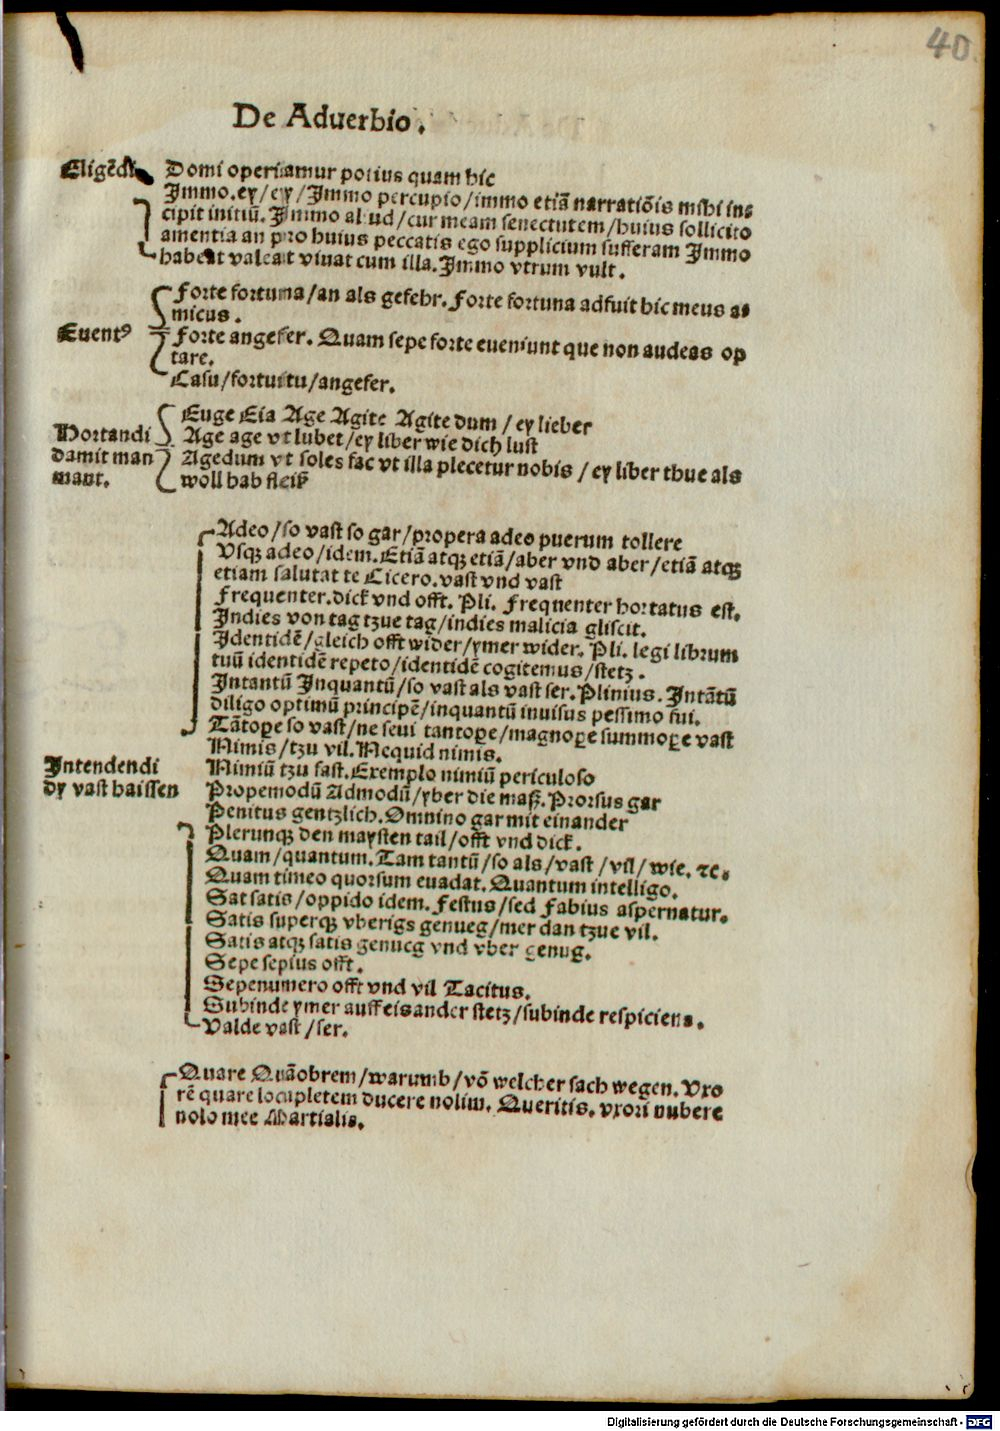 40
De Aduerbio.
Eligēdi
Domi operiamur potius quam hic
Immo.ey/ey/Immo percupio/immo etiā narratiōis mihi in⸗
cipit initiū. Immo aliud/cur meam senectutem/huius sollicito
amentia an pro huius peccatis ego supplicium sufferam Immo
habeat valeat viuat cum illa.Immo vtrum vult.
Forte fortuna/an als gefehr. Forte fortuna adfuit hic meus a⸗
micus.
Euentꝰ
Forte angefer. Quam sepe forte eueniunt que non audeas op
tare.
Casu/fortuitu/angefer.
Euge Eia Age Agite Agite dum / ey lieber
Hortandi
Age age vt lubet/ey liber wie dich lust
damit man
Agedum vt soles fac vt illa plecetur nobis / ey liber thue als
mant.
woll hab fleiß
Adeo/so vast so gar/propera adeo puerum tollere
Vsqꝫ adeo/idem.Etiā atqꝫ etiā/aber vnd aber/etiā atqꝫ
etiam salutat te Cicero.vast vnd vast
Frequenter.dick vnd offt. Pli. Frequenter hortatus est.
Indies von tag tzue tag/indies malicia gliscit.
Identidē/gleich offt wider/ymer wider. Pli. legi librum
tuū identidē repeto/identidē cogitemus/stetz.
Intantū Inquantū/so vast als vast ser. Plinius. Intātū
diligo optimū principē/inquantū inuisus pessimo fui.
Tātoꝑe so vast/ne seui tantoꝑe/magnoꝑe summoꝑe vast
Nimis/tzu vil.Nequid nimis.
Intendendi
Nimiū tzu fast.Exemplo nimiū periculoso
dy vast haissen
Propemodū Admodū/yber die maß.Prorsus gar
Penitus gentzlich.Omnino gar mit einander
Plerunqꝫ den maysten tail/offt vnd dick.
Quam/quantum.Tam tantū/so als/vast/vil/wie.⁊c.
Quam timeo quorsum euadat.Quantum intelligo.
Sat satis/oppido idem. Festus/sed Fabius aspernatur.
Satis superqꝫ vberigs genueg/mer dan tzue vil.
Satis atqꝫ satis genueg vnd vber genug.
Sepe sepius offt.
Sepenumero offt vnd vil Tacitus.
Subinde ymer auff eisander stetz/subinde respiciens.
Valde vast/ser.
Quare Quāobrem/warumb/vō welcher sach wegen. Vxo
rē quare locupletem ducere nolim. Queritis. vxori nubere
nolo mee Martialis.
Digitalisierung gefördert durch die Deutsche Forschungsgemeinschaft - DFG